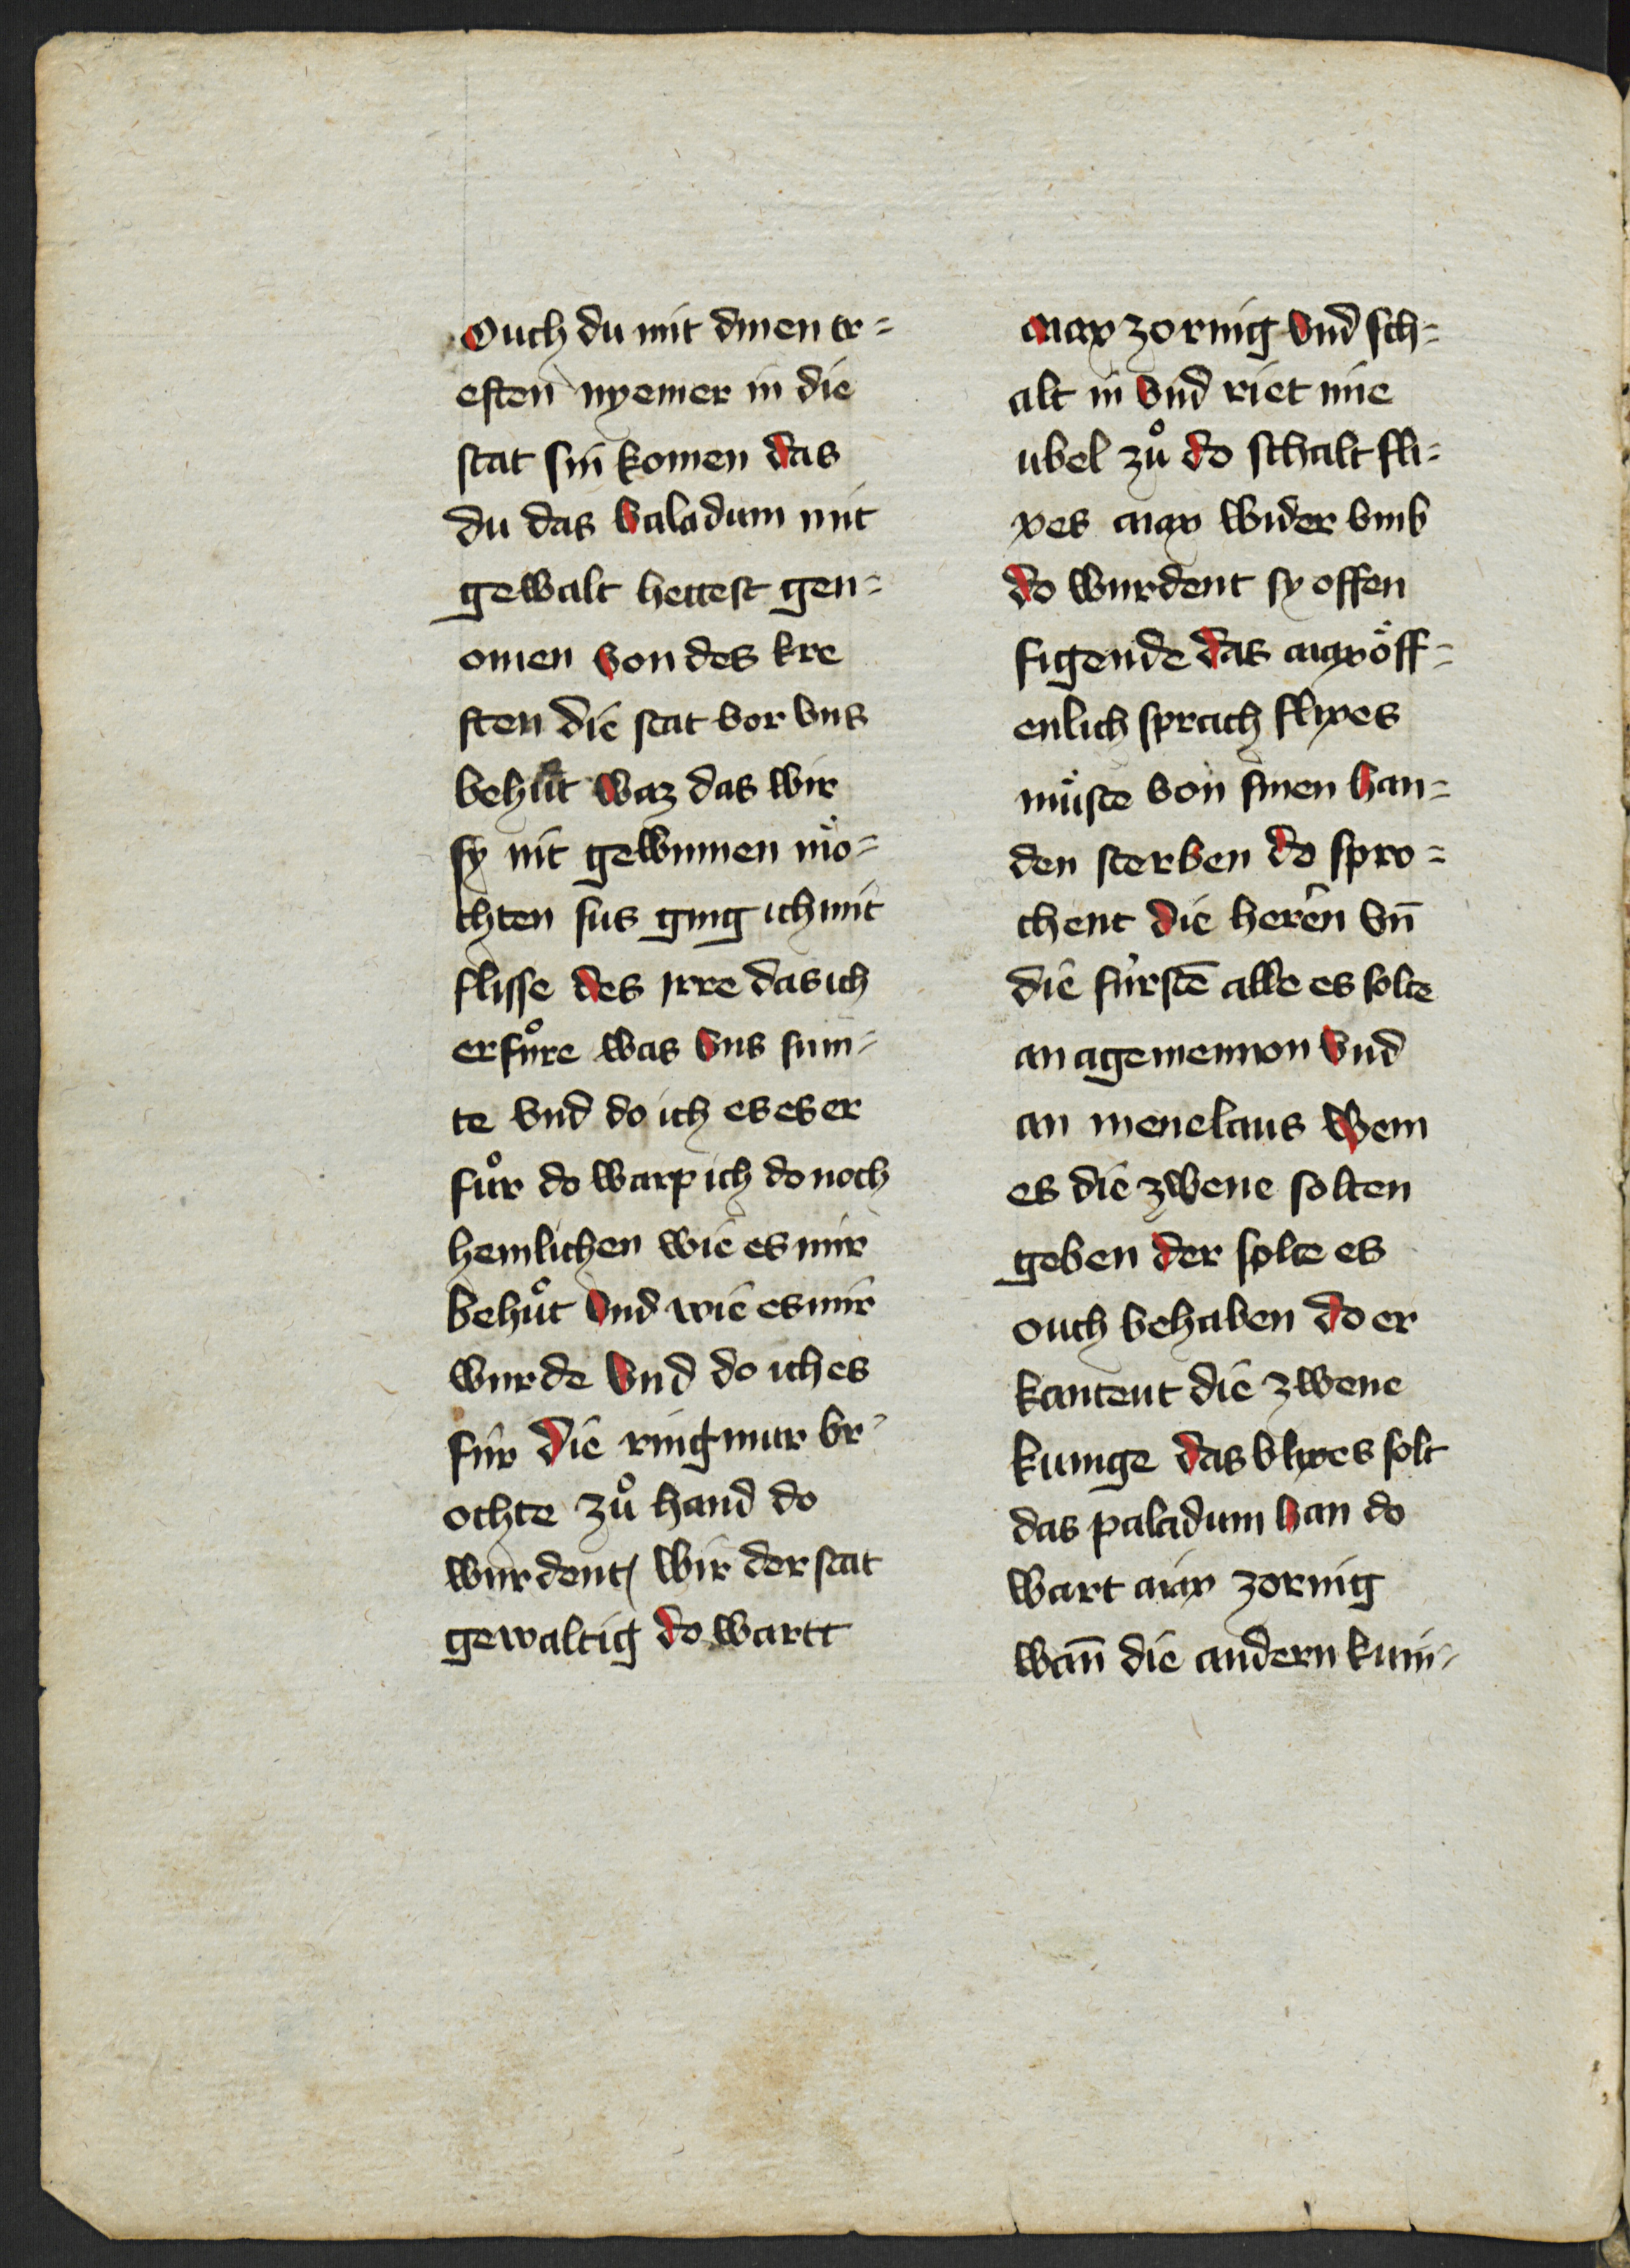 Ouch du mit dinen cr⸗
eften nyemer in die
stat sin komen das
du das valadum mit
gewalt hettest gen⸗
omen von des kre
ften die stat vor vns
behuͤt waz das wir
sy nit gewinnen moͤ⸗
chten sus ging ich mit
flisse des irre das ich
erfuͦre was vns sum⸗
te vnd do ich es es er
fuͦr do warp ich do noch
hemlichen wie es mir
behuͦt vnd wie es mir
wurde vnd do ich es
fur die ringmur br⸗
ochte zuͦ hand do
wurdent wir der stat
gewaltig do wartt
aiax zornig vnd sch⸗
alt in vnd riet mie
ubel zuͦ do schalt fli⸗
xes aiax wider vmb
do wurdent sy offen
figende das aiax oͤff⸗
enlich sprach flixes
muͤste von sinen han⸗
den sterben do spro⸗
chent die heren vn̄
die furstē alle es solte
an agemennon vnd
an menelaus wem
es die zwene solten
geben der solte es
ouch behaben do er
kantent die zwene
kunige das vlixes solt
das paladum han do
wart aiax zornig
wan̄ die andern kuni⸗